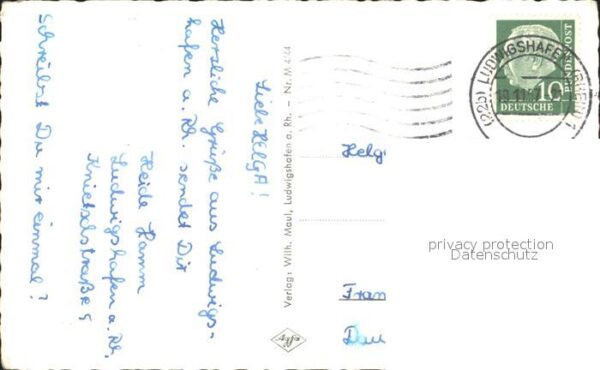 Liebe HELGA!
Herzliche Grüße aus Ludwigs-
hafen a. Rh. sendet Dir
Heide Hamm
Ludwigshafen a. Rh.
Knietschstraße 5
Schreibst Du mir einmal?
Verlag: Wilh. Maul, Ludwigshafen a. Rh. – Nr. M 4/44
Helg
Fran
(22b) LUDWIGSHAFEN (RHEIN) 1
10
DEUTSCHE
BUNDESPOST
privacy protection
Datenschutz